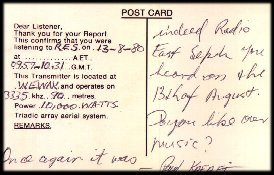 POST CARD
Dear Listener,
Thank you for your Report
This confirms that you were
listening to R.E.S. on 13-8-80
at ............ A.E.T.
0957-1031 G.M.T.
This Transmitter is located at
WEWAK and operates on
3335 khz. 90 metres.
Power 10,000 WATTS
Triadic array aerial system.
REMARKS.
Once again it was
indeed Radio
East Sepik you
heard on the
13th of August.
Do you like our
music?